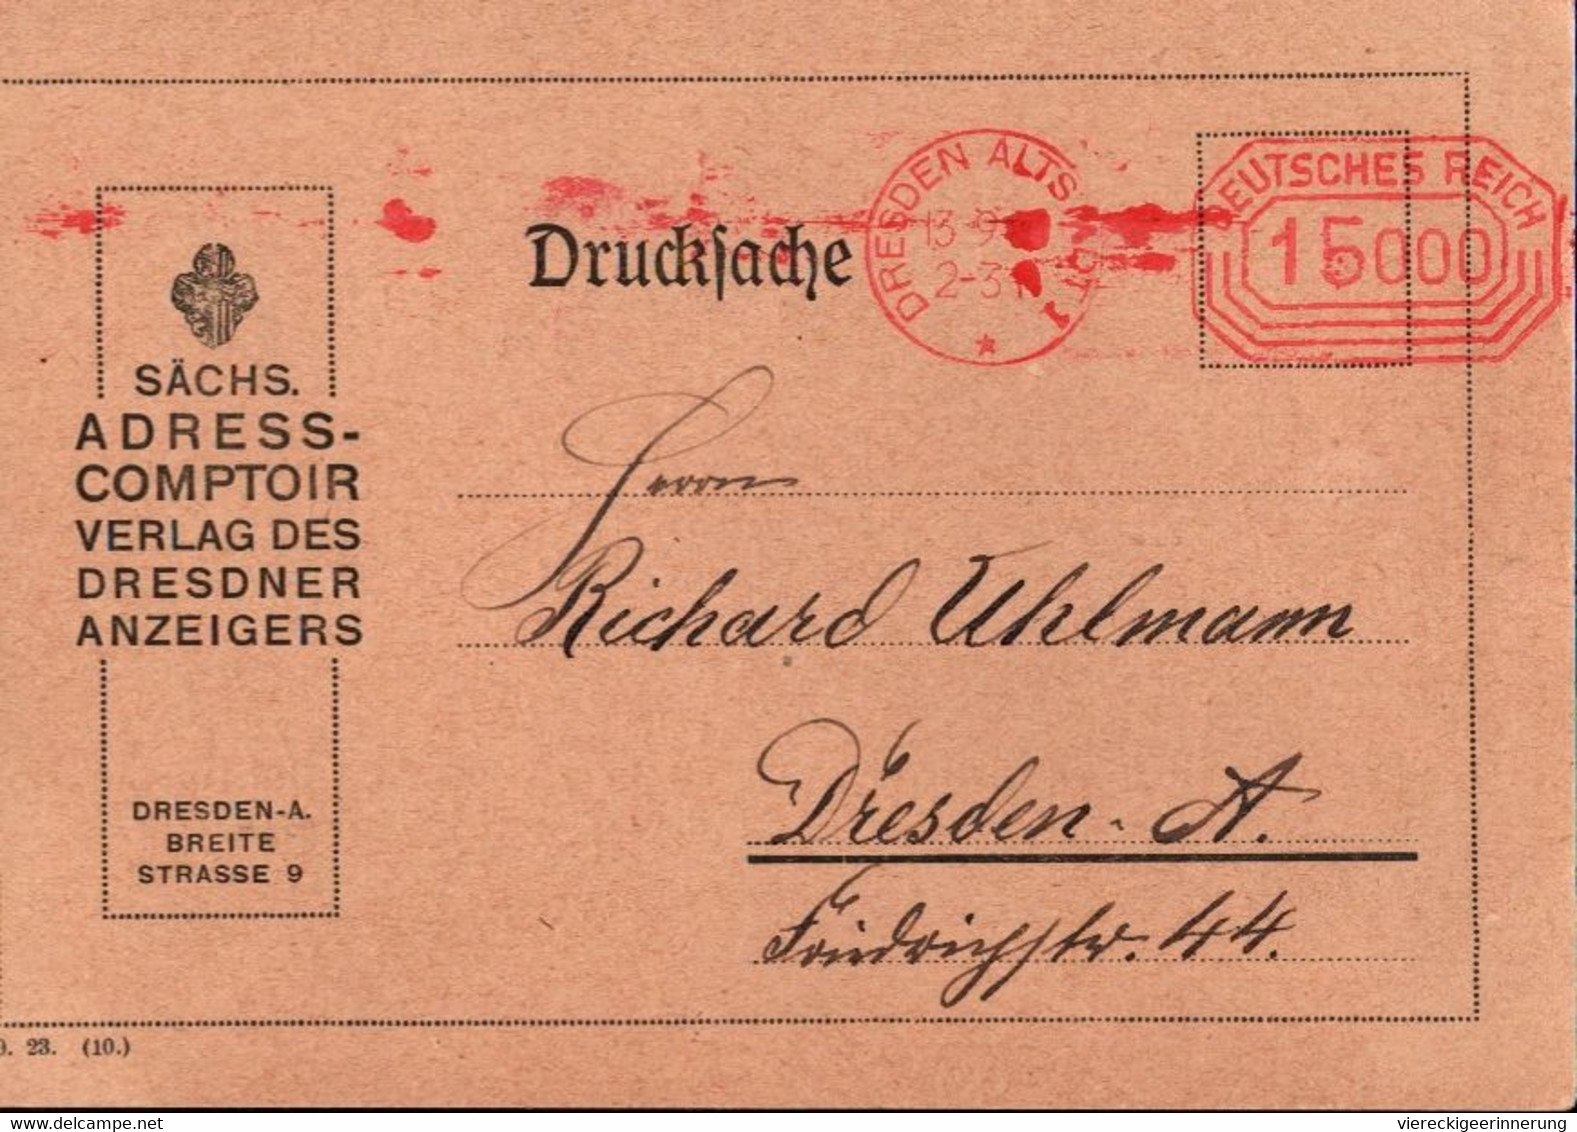 DRESDEN ALTST
13-9
2-3
1
DEUTSCHES REICH
15000
Drucksache
SÄCHS.
ADRESS-
COMPTOIR
VERLAG DES
DRESDNER
ANZEIGERS
DRESDEN-A.
BREITE
STRASSE 9
Herrn
Richard Uhlmann
Dresden-A.
Friedrichstr. 44.
9. 23. (10.)
viereckigeerinnerung